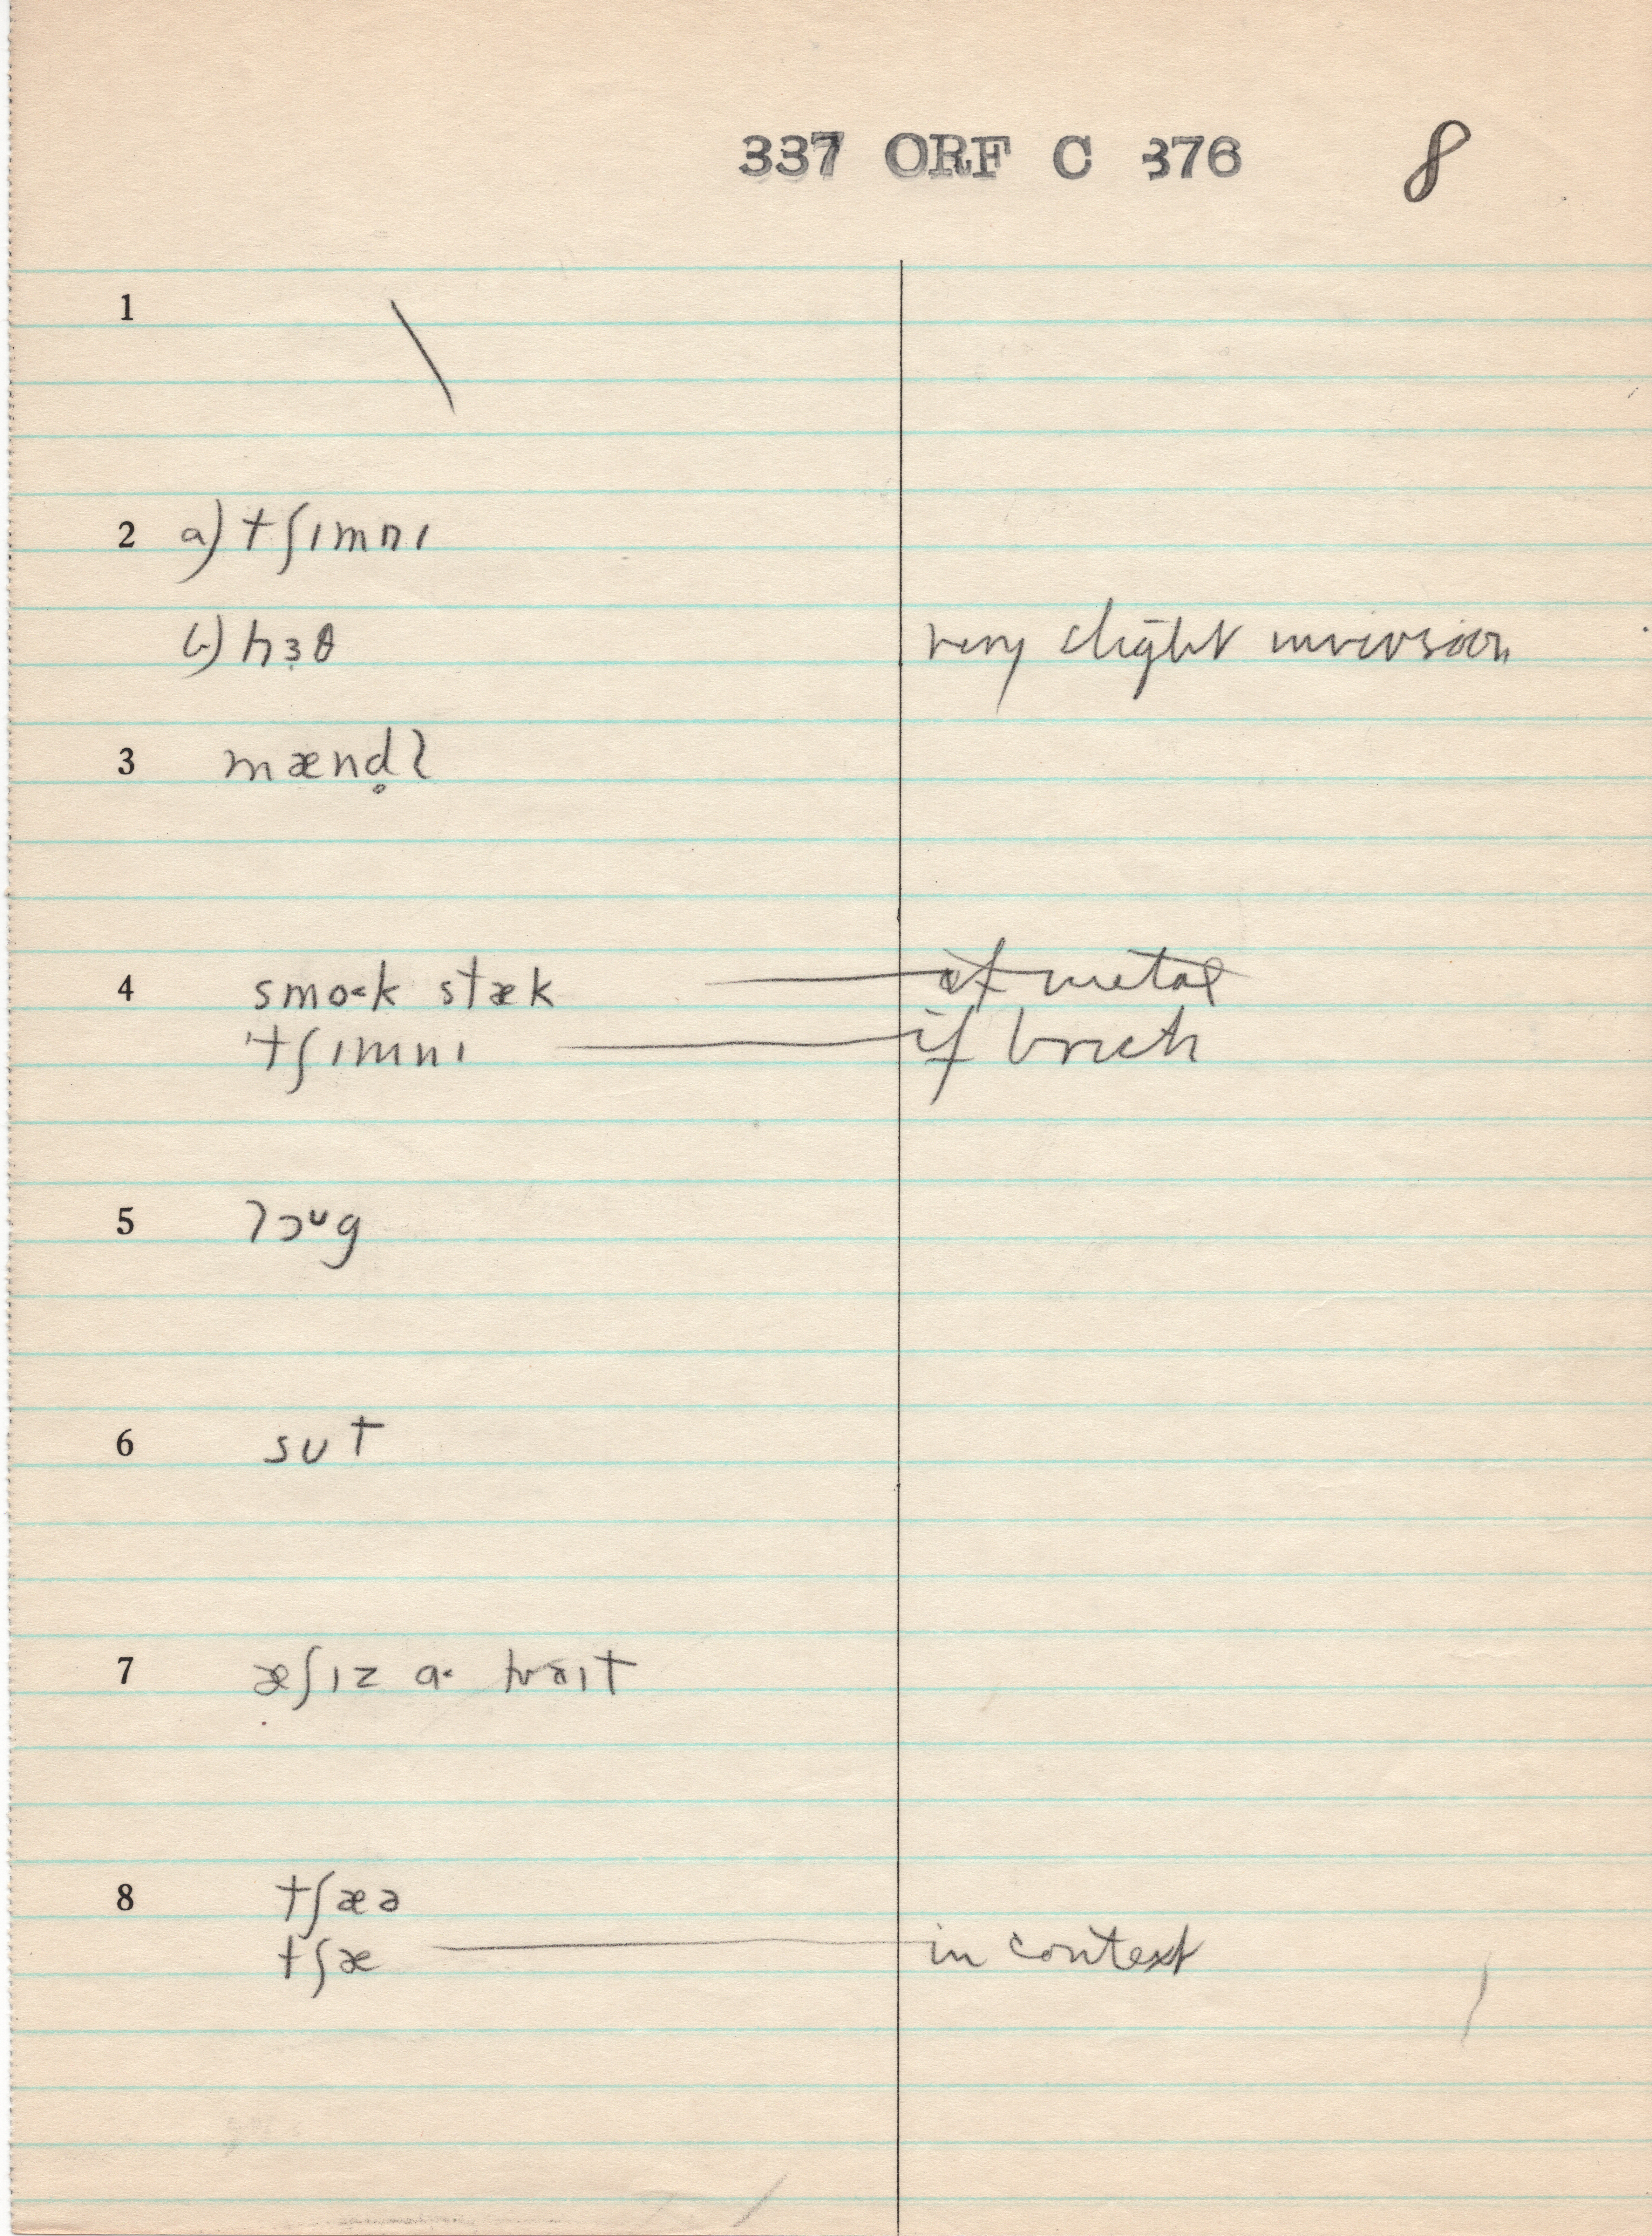 337 ORF C 376 8
1 \
2 a) tʃɪmnɪ
b) hɜ̣θ very slight inversion
3 mænd̥l
4 smo˂k stæk — if metal
'tʃɪmnɪ — if brick
5 lɔᶷg
6 sʊt
7 æʃɪz a·
8 tʃæə
tʃæ — in context